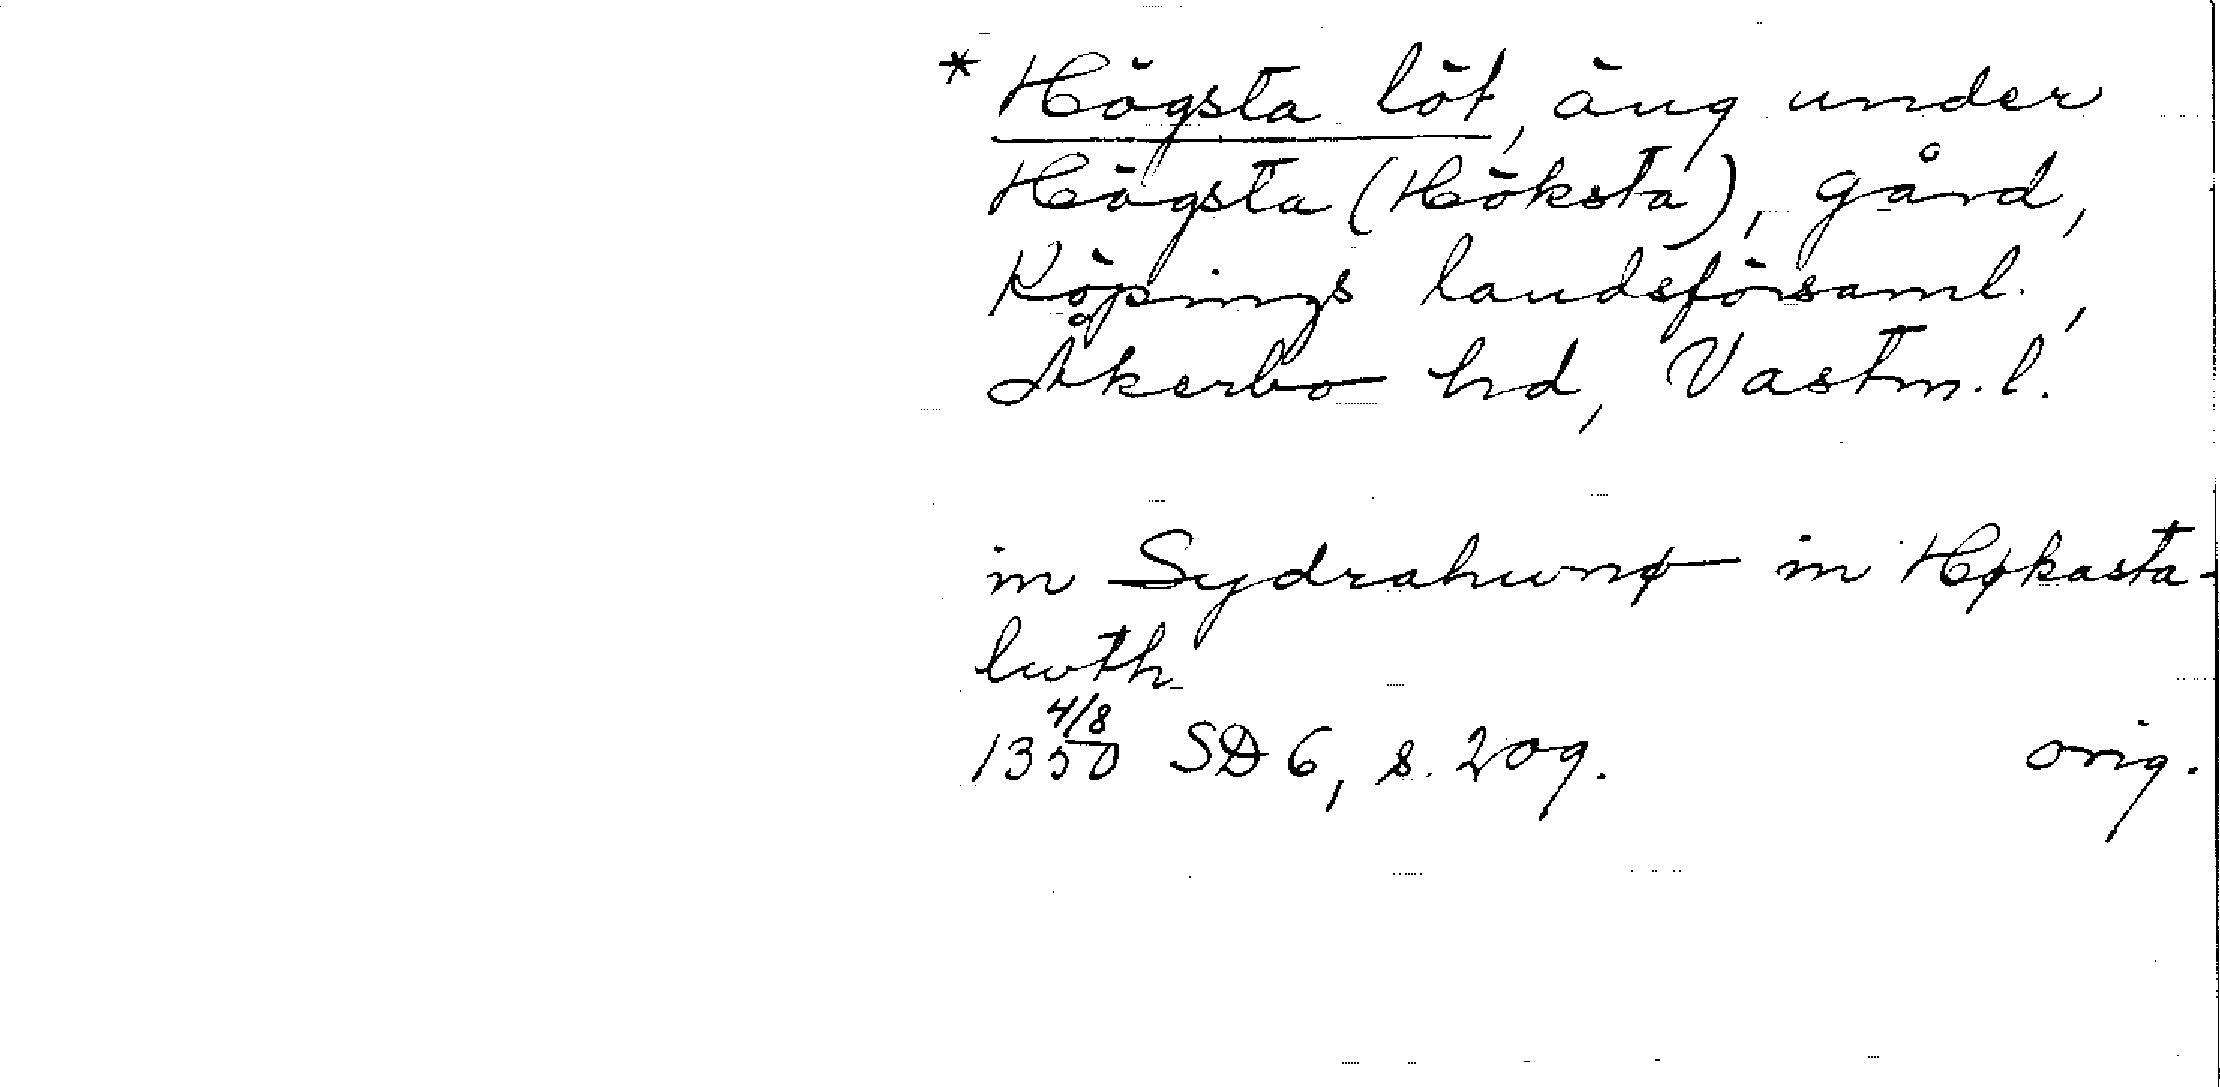 * Högsta löt, äng under
Högsta (Höksta), gård,
Köpings landsförsaml.,
Åkerbo hd, Vastm. l.
in Sydrahwnø in Høkasta-
lwth
1350 4/8 SD 6, s. 209. orig.